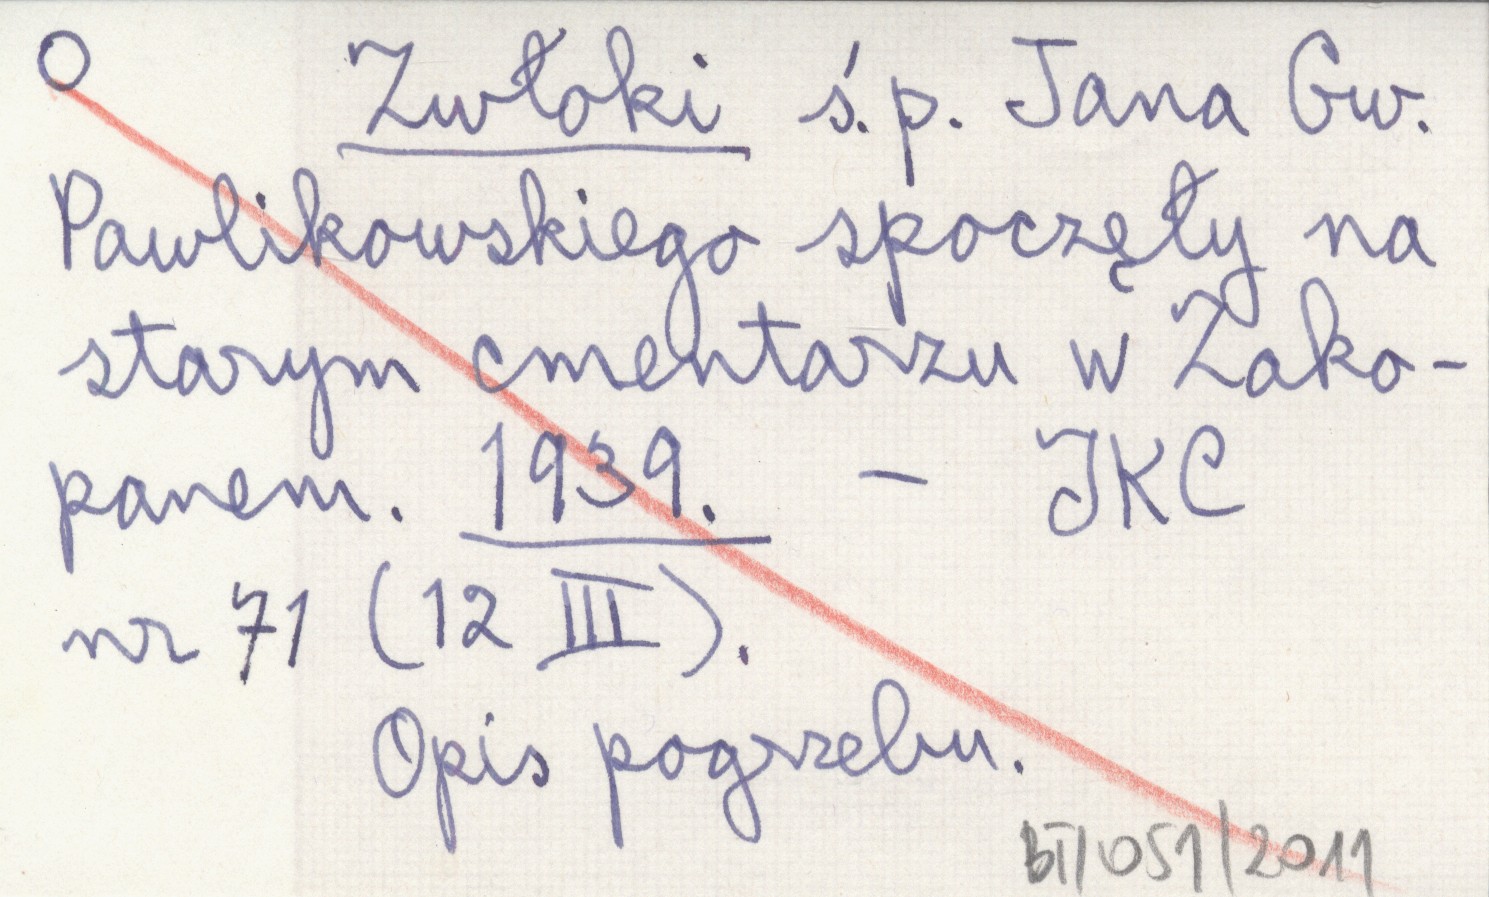 Zwłoki ś.p. Jana Gw.
Pawlikowskiego spoczęły na
starym cmentarzu w Zako-
panem. 1939. - IKC
nr 71 (12 III).
Opis pogrzebu.
BT/051/2011